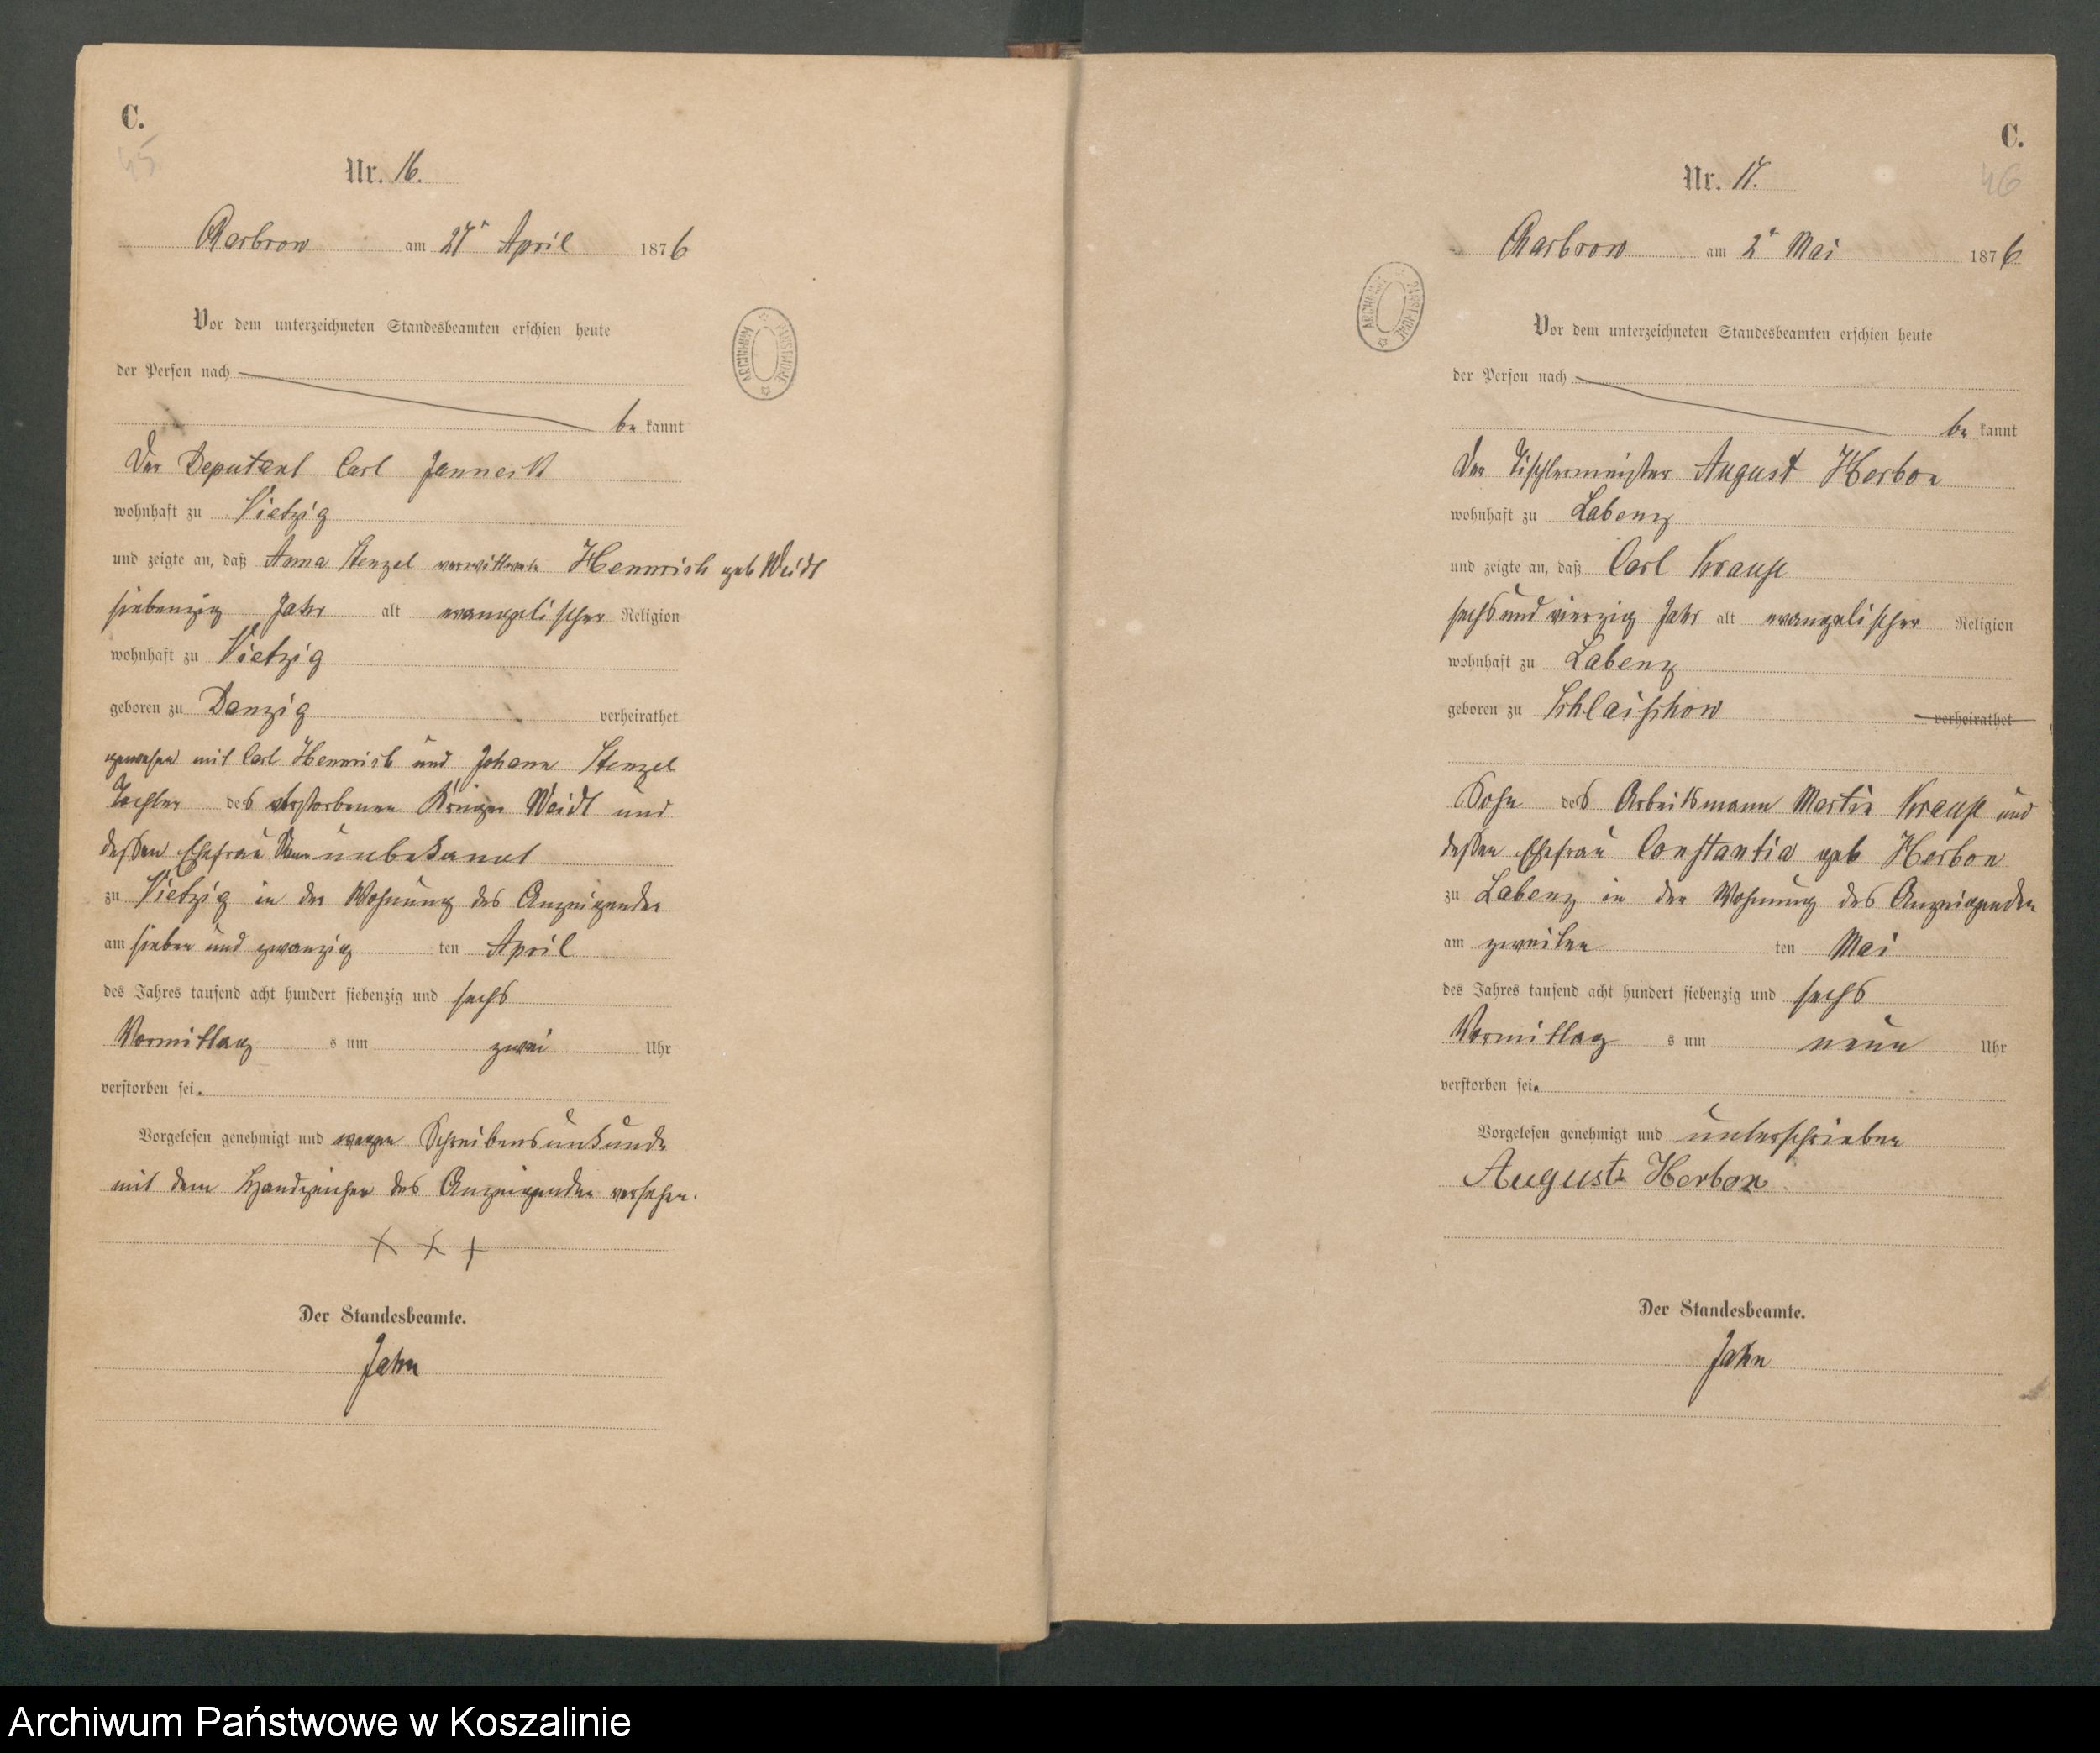 C.
45
Nr. 16.
Charbrow am 27t April 1876
Vor dem unterzeichneten Standesbeamten erschien heute
der Person nach
be kannt
Der Deputant Carl Janneck
wohnhaft zu Vietzig
und zeigte an, daß Anna Stenzel verwittwete Hennrich geb Weidt
siebenzig Jahr alt evangelischer Religion
wohnhaft zu Vietzig
geboren zu Danzig verheirathet
gewesen mit Carl Hennrich und Johann Stenzel
Tochter des verstorbenen Krüger Weidt und
dessen Ehefrau Name unbekannt
zu Vietzig in der Wohnung des Anzeigenden
am sieben und zwanzig ten April
des Jahres tausend acht hundert siebenzig und sechs
Vormittag s um zwei Uhr
verstorben sei.
Vorgelesen genehmigt und wegen Schreibensunkunde
mit dem Handzeichen des Anzeigenden versehen.
+ + +
Der Standesbeamte.
Jahn
C.
46
Nr. 17.
Charbrow am 2t Mai 1876
ARCHIWUM PAŃSTWOWE
Vor dem unterzeichneten Standesbeamten erschien heute
der Person nach
be kannt
Der Tischlermeister August Herbon
wohnhaft zu Labenz
und zeigte an, daß Carl Krause
sechs und vierzig Jahr alt evangelischer Religion
wohnhaft zu Labenz
geboren zu Schlaischow verheirathet
Sohn des Arbeitsmann Martin Krause und
dessen Ehefrau Constantia geb Herbon
zu Labenz in der Wohnung des Anzeigenden
am zweiten ten Mai
des Jahres tausend acht hundert siebenzig und sechs
Vormittag s um neun Uhr
verstorben sei.
Vorgelesen genehmigt und unterschrieben
August Herbon
Der Standesbeamte.
Jahn
Archiwum Państwowe w Koszalinie